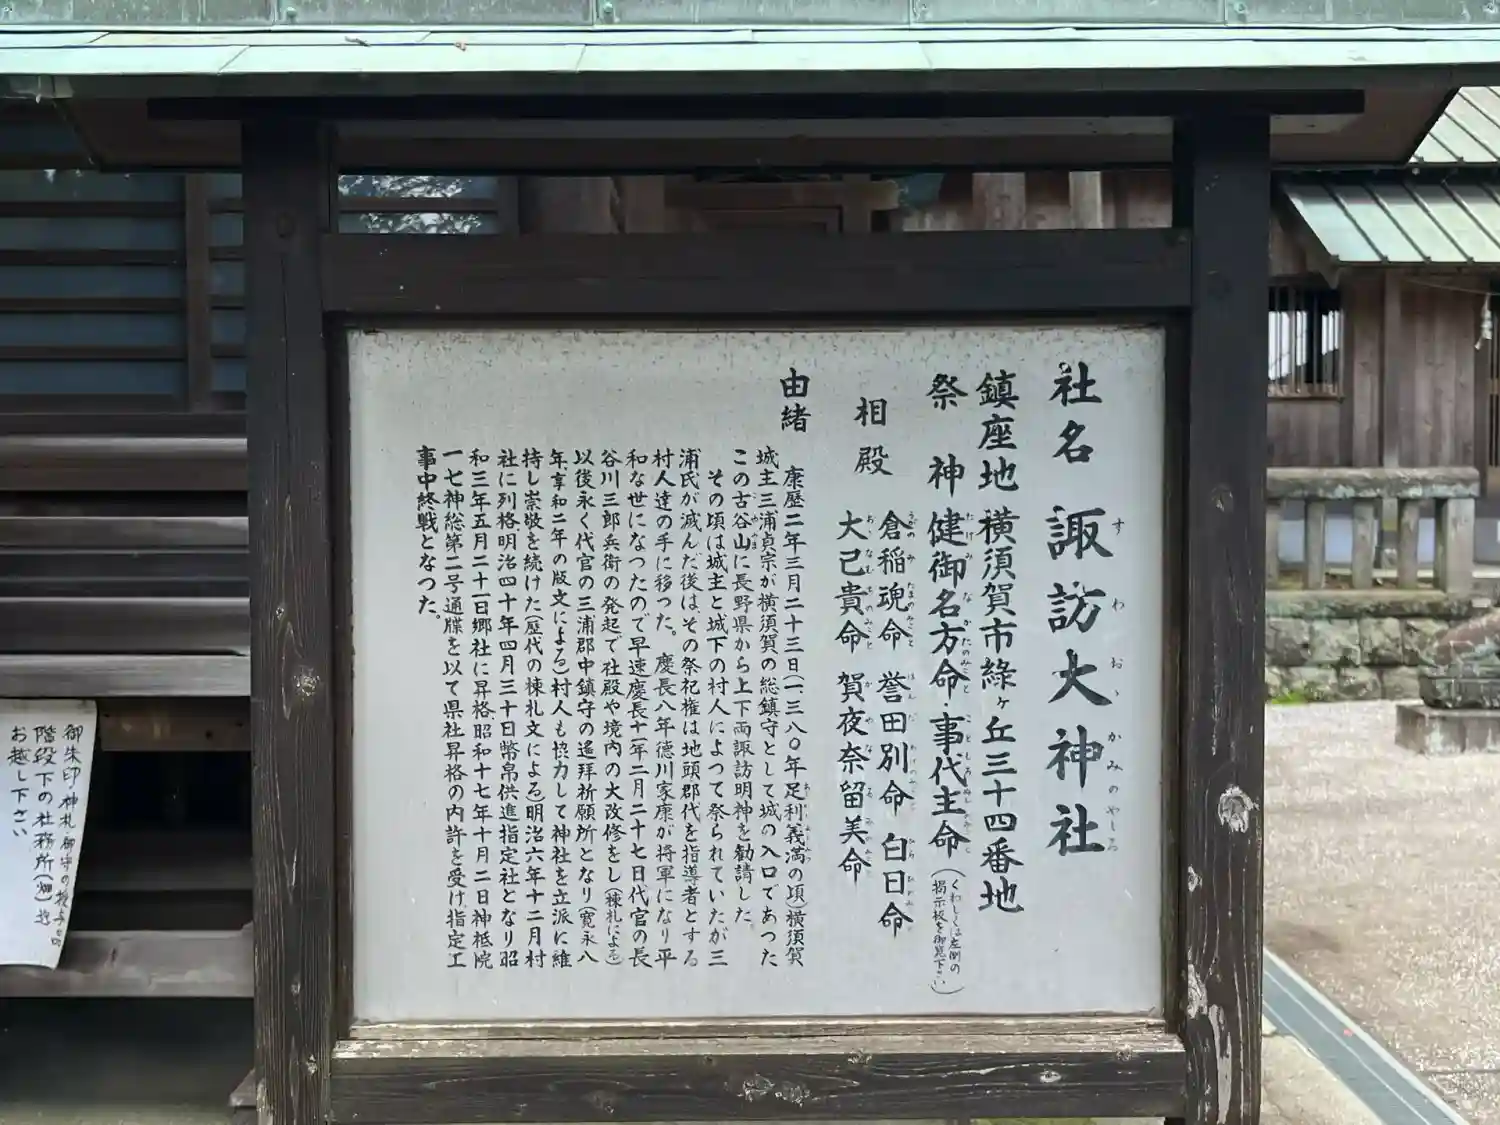 社名 諏訪大神社
すわおゝかみのやしろ
鎮座地 横須賀市緑ヶ丘三十四番地
祭神 健御名方命・事代主命(くわしくは左側の掲示板を御覧下さい)
たけみなかたのみこと ことしろぬしのみこと
相殿 倉稲魂命 誉田別命 白日命
大己貴命 賀夜奈留美命
由緒
康歴二年三月二十三日(一三八〇年足利義満の頃)横須賀
城主三浦貞宗が横須賀の総鎮守として城の入口であった
この古谷山に長野県から上下両諏訪明神を勧請した。
その頃は城主と城下の村人によつて祭られていたが三
浦氏が滅んだ後は、その祭祀権は地頭郡代を指導者とする
村人達の手に移つた。慶長八年徳川家康が将軍になり平
和な世になつたので早速慶長十一年二月二十七日代官の長
谷川三郎兵衛の発起で社殿や境内の大改修をし(棟札による)
以後永く代官の三浦郡中鎮守の遙拝祈願所となり(寛永八
年、享和二年の版文による)村人も協力して神社を立派に維
持し崇敬を続けた(歴代の棟札文による)明治六年十二月村
社に列格明治四十年四月三十日幣帛供進指定社となり昭
和三年五月二十一日郷社に昇格昭和十七年十月二日神祗院
一七神総第二号通牒を以て県社昇格の内許を受け指定工
事中終戦となつた。
御朱印・神札・御守の授与は
階段下の社務所(畑)迄
お越し下さい